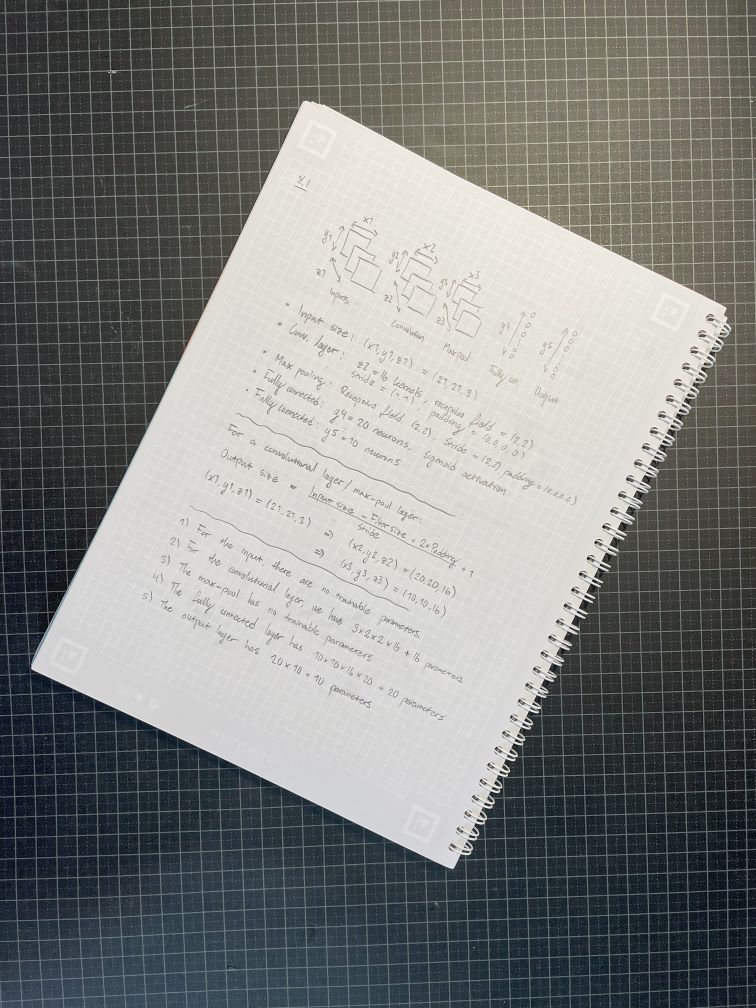 8.1
x1
y1
z1
Inputs
x2
y2
z2
Convolution
x3
y3
z3
Maxpool
y4
Fully con.
y5
Output
• Input size: (x1, y1, z1) = (21, 21, 3)
• Conv. layer: z2 = 16 kernels, receptive field = (2,2)
stride = (1,1), padding = (0,0,0,0)
• Max pooling: Receptive field (2,2), Stride = (2,2), padding = (0,0,0,0)
• Fully connected: y4 = 20 neurons, sigmoid activation
• Fully connected: y5 = 10 neurons
For a convolutional layer/max-pool layer:
Output size = Input size - Filter size + 2 x Padding + 1
Stride
(x1, y1, z1) = (21, 21, 3) ⇒ (x2, y2, z2) = (20, 20, 16)
⇒ (x3, y3, z3) = (10, 10, 16)
1) For the input, there are no trainable parameters
2) For the convolutional layer, we have 3 x 2 x 2 x 16 + 16 parameters
3) The max-pool has no trainable parameters
4) The fully connected layer has 10 x 10 x 16 x 20 + 20 parameters
5) The output layer has 20 x 10 + 10 parameters